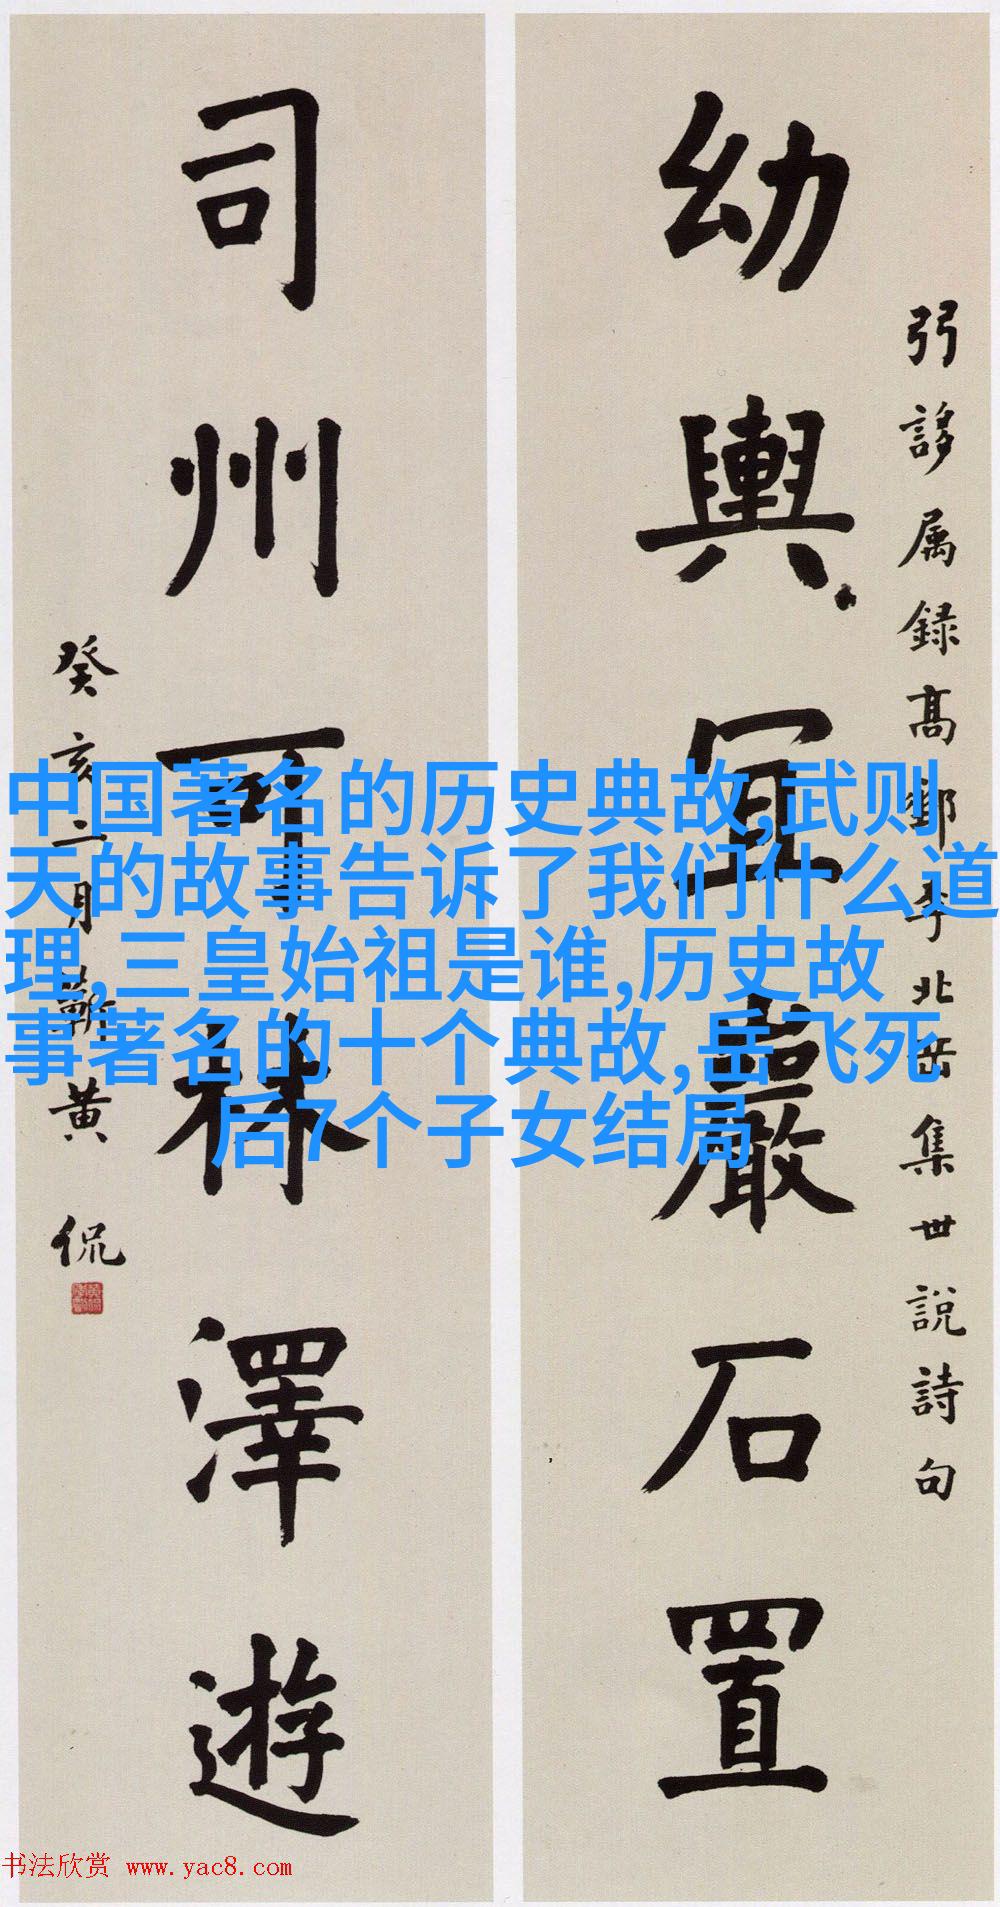 弜誃属録高邮李北岳集世説詩句
幼輿宜置巖石
司州可与林澤遊
癸亥二月蘄黄侃
中国著名的历史典故,武则
天的故事告诉了我们什么道
理,三皇始祖是谁,历史故
事著名的十个典故,岳飞死
后7个子女结局
书法欣赏 www.yac8.com